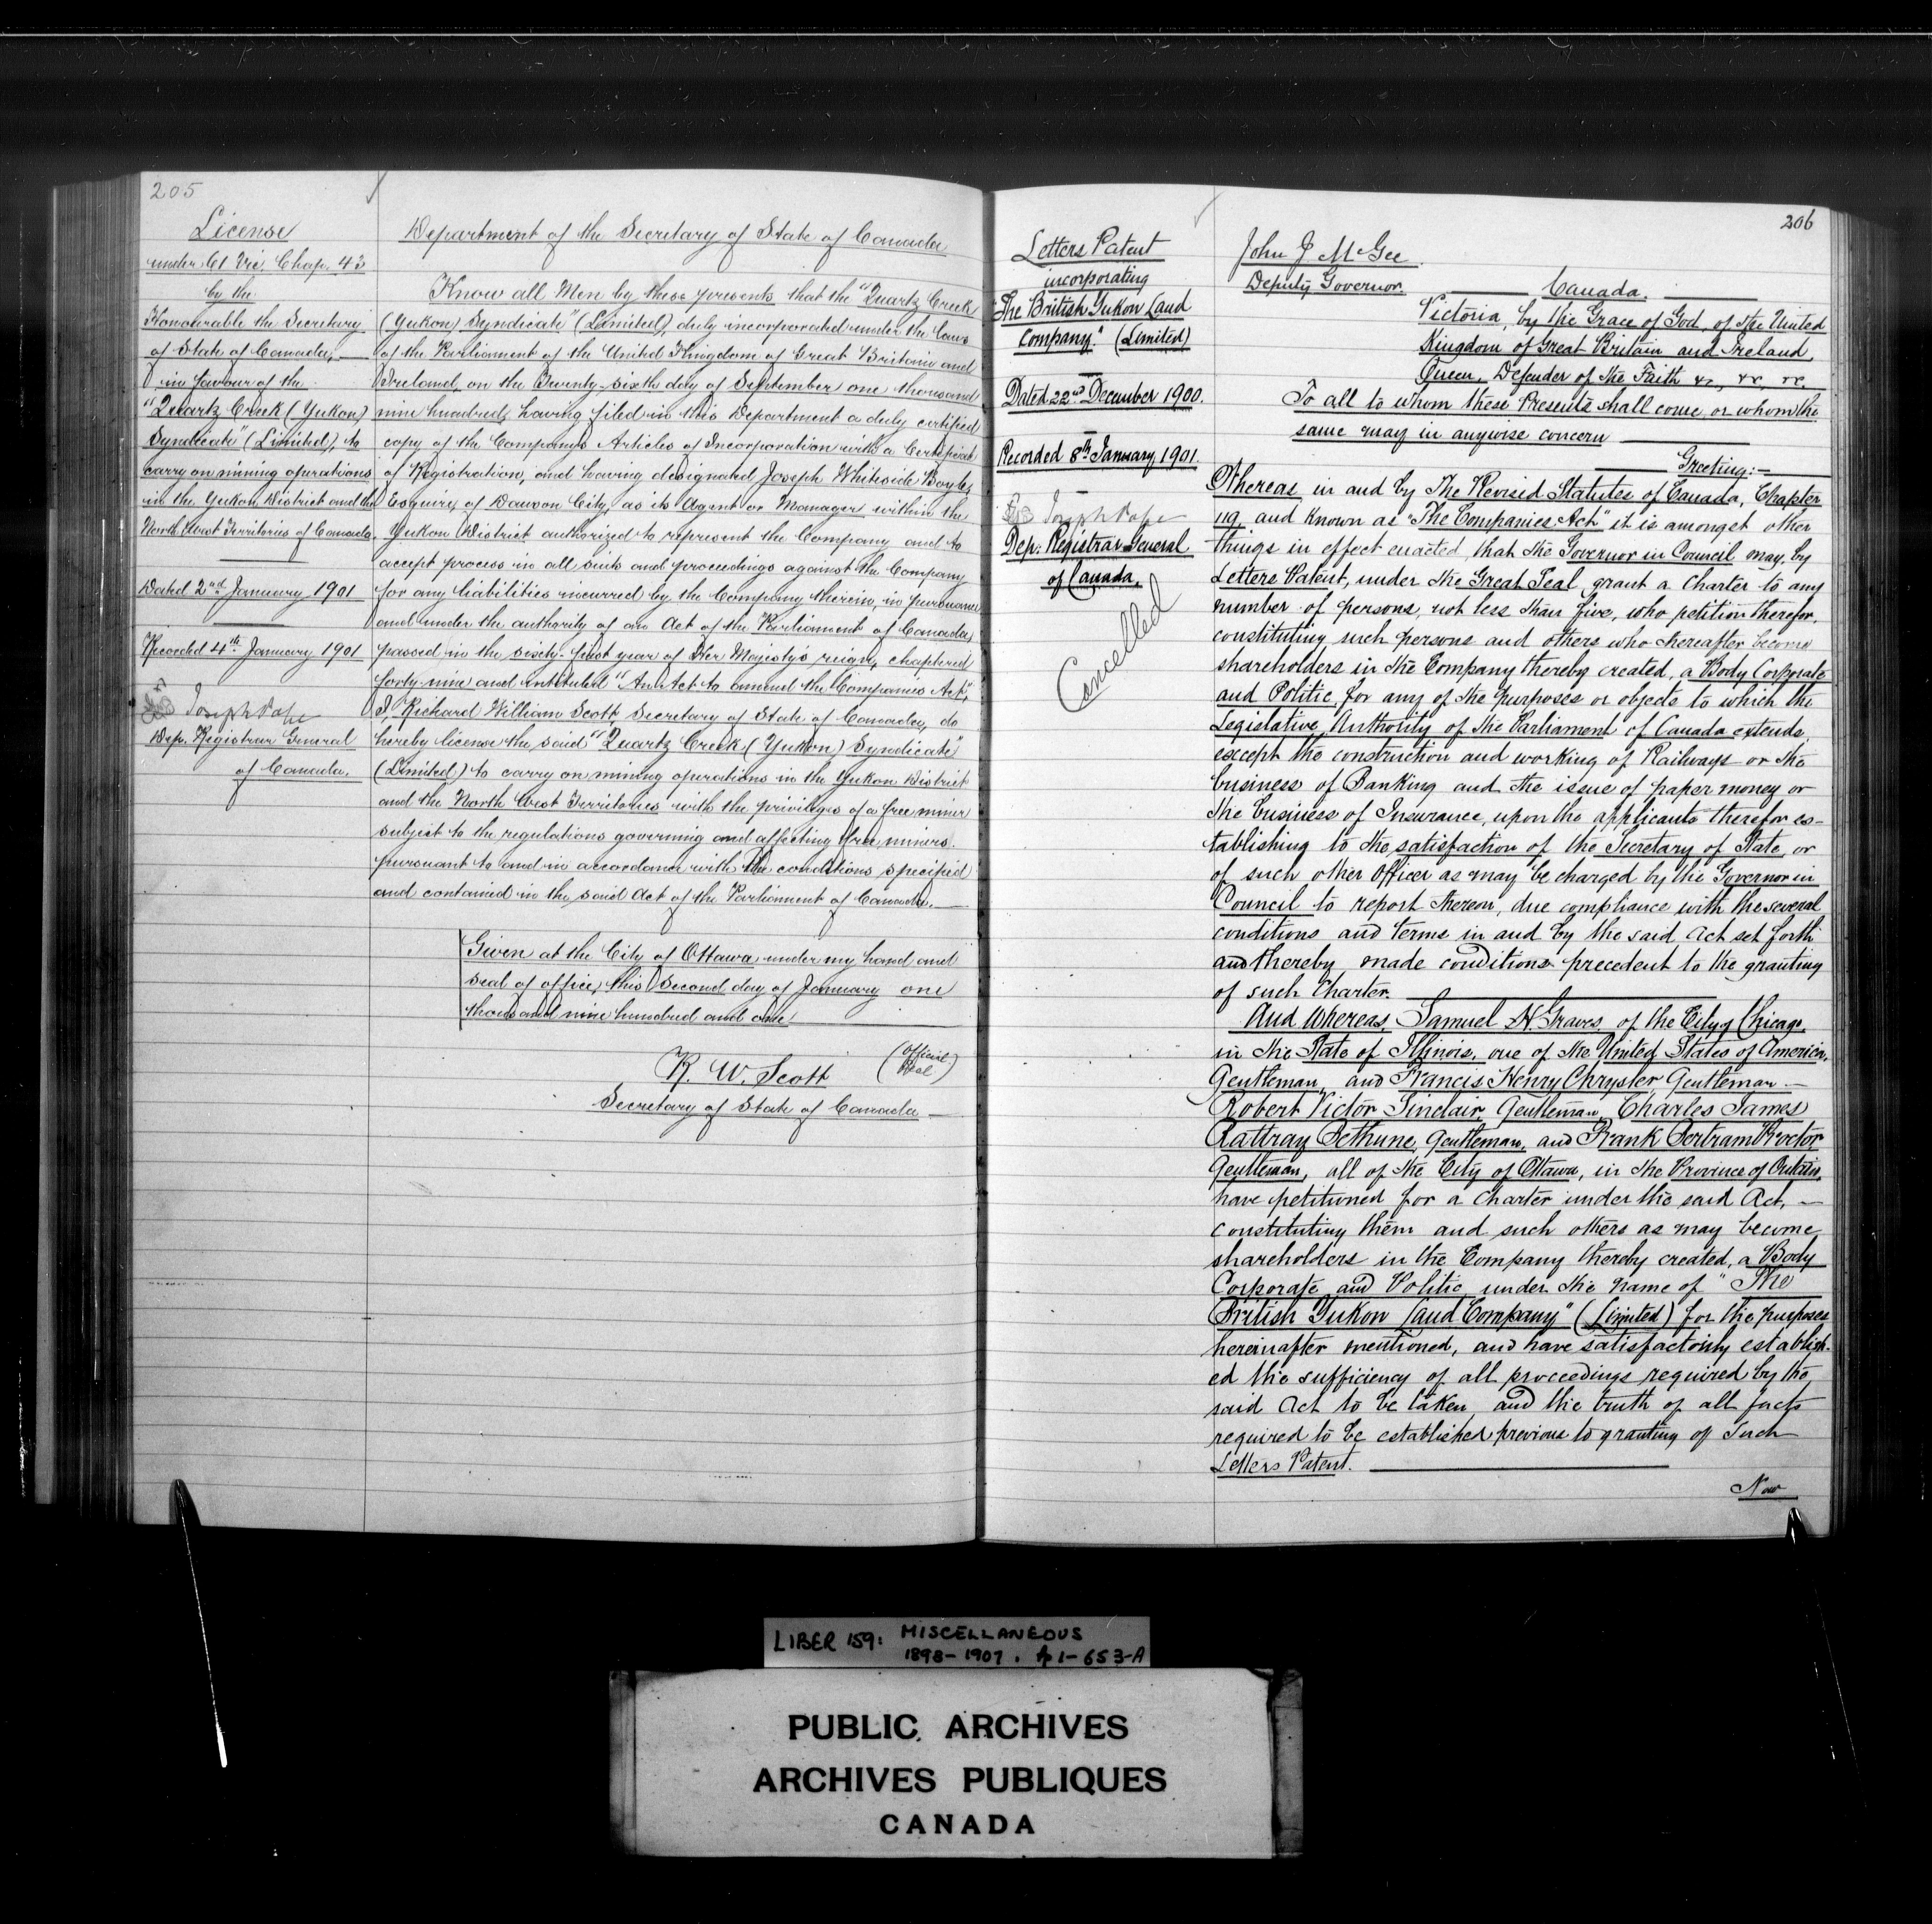 205
License
under 61 Vic. Chap. 43
by the
Honourable the Secretary
of State of Canada,
in favour of the
"Quartz Creek (Yukon)
Syndicate" (Limited), to
carry on mining operations
in the Yukon District and the
North West Territories of Canada
Dated 2nd January 1901
Recorded 4th January 1901
Joseph Pope
Dep. Registrar General
of Canada.
Department of the Secretary of State of Canada
Know all Men by these presents that the "Quartz Creek
(Yukon) Syndicate" (Limited), duly incorporated under the laws
of the Parliament of the United Kingdom of Great Britain and
Ireland, on the Twenty-sixth day of September one thousand
nine hundred, having filed in this Department a duly certified
copy of the Company's Articles of Incorporation with a Certificate
of Registration, and having designated Joseph Whiteside Boyle,
Esquire, of Dawson City, as its Agent or Manager within the
Yukon District authorized to represent the Company and to
accept process in all suits and proceedings against the Company
for any liabilities incurred by the Company therein, in pursuance
and under the authority of an Act of the Parliament of Canada,
passed in the sixty-first year of Her Majesty's reign, chaptered
forty-nine and intituled "An Act to amend the Companies Act",
I, Richard William Scott, Secretary of State of Canada, do
hereby license the said "Quartz Creek (Yukon) Syndicate"
(Limited) to carry on mining operations in the Yukon District
and the North West Territories with the privileges of a free miner
subject to the regulations governing and affecting free miners.
pursuant to and in accordance with the conditions specified
and contained in the said Act of the Parliament of Canada.
Given at the City of Ottawa under my hand and
seal of office, this Second day of January one
thousand nine hundred and one
R. W. Scott (Official Seal)
Secretary of State of Canada
206
Letters Patent
incorporating
"The British Yukon Land
Company." (Limited)
Dated 22nd December 1900.
Recorded 8th January 1901.
Joseph Pope
Dep. Registrar General
of Canada.
Cancelled
John J McGee
Deputy Governor
Canada.
Victoria, by the Grace of God, of the United
Kingdom of Great Britain and Ireland,
Queen, Defender of the Faith &c., &c., &c.
To all to whom these Presents shall come, or whom the
same may in anywise concern
Greeting:—
Whereas in and by The Revised Statutes of Canada, Chapter
119, and known as "The Companies Act" it is amongst other
things in effect enacted, that the Governor in Council may, by
Letters Patent, under the Great Seal, grant a Charter to any
number of persons, not less than five, who petition therefor,
constituting such persons and others who thereafter become
shareholders in the Company thereby created, a Body Corporate
and Politic, for any of the purposes or objects to which the
Legislative Authority of the Parliament of Canada extends,
except the construction and working of Railways or the
business of Banking and the issue of paper money or
the business of Insurance, upon the applicants therefor es-
tablishing to the satisfaction of the Secretary of State, or
of such other Officer as may be charged by the Governor in
Council to report thereon, due compliance with the several
conditions and terms in and by the said Act set forth
and thereby made conditions precedent to the granting
of such Charter.
And Whereas, Samuel H. Graves, of the City of Chicago,
in the State of Illinois, one of the United States of America,
Gentleman, and Francis Henry Chrysler, Gentleman —
Robert Victor Sinclair, Gentleman, Charles James
Rattray Bethune, Gentleman, and Frank Bertram Proctor
Gentleman, all of the City of Ottawa, in the Province of Ontario,
have petitioned for a Charter under the said Act, —
constituting them and such others as may become
shareholders in the Company thereby created, a Body
Corporate and Politic under the name of "The
British Yukon Land Company" (Limited) for the purposes
hereinafter mentioned, and have satisfactorily establish-
ed the sufficiency of all proceedings required by the
said Act to be taken, and the truth of all facts
required to be established previous to granting of such
Letters Patent.
Now
LIBER 159: MISCELLANEOUS
1898-1907. pp 1-653-A
PUBLIC ARCHIVES
ARCHIVES PUBLIQUES
CANADA